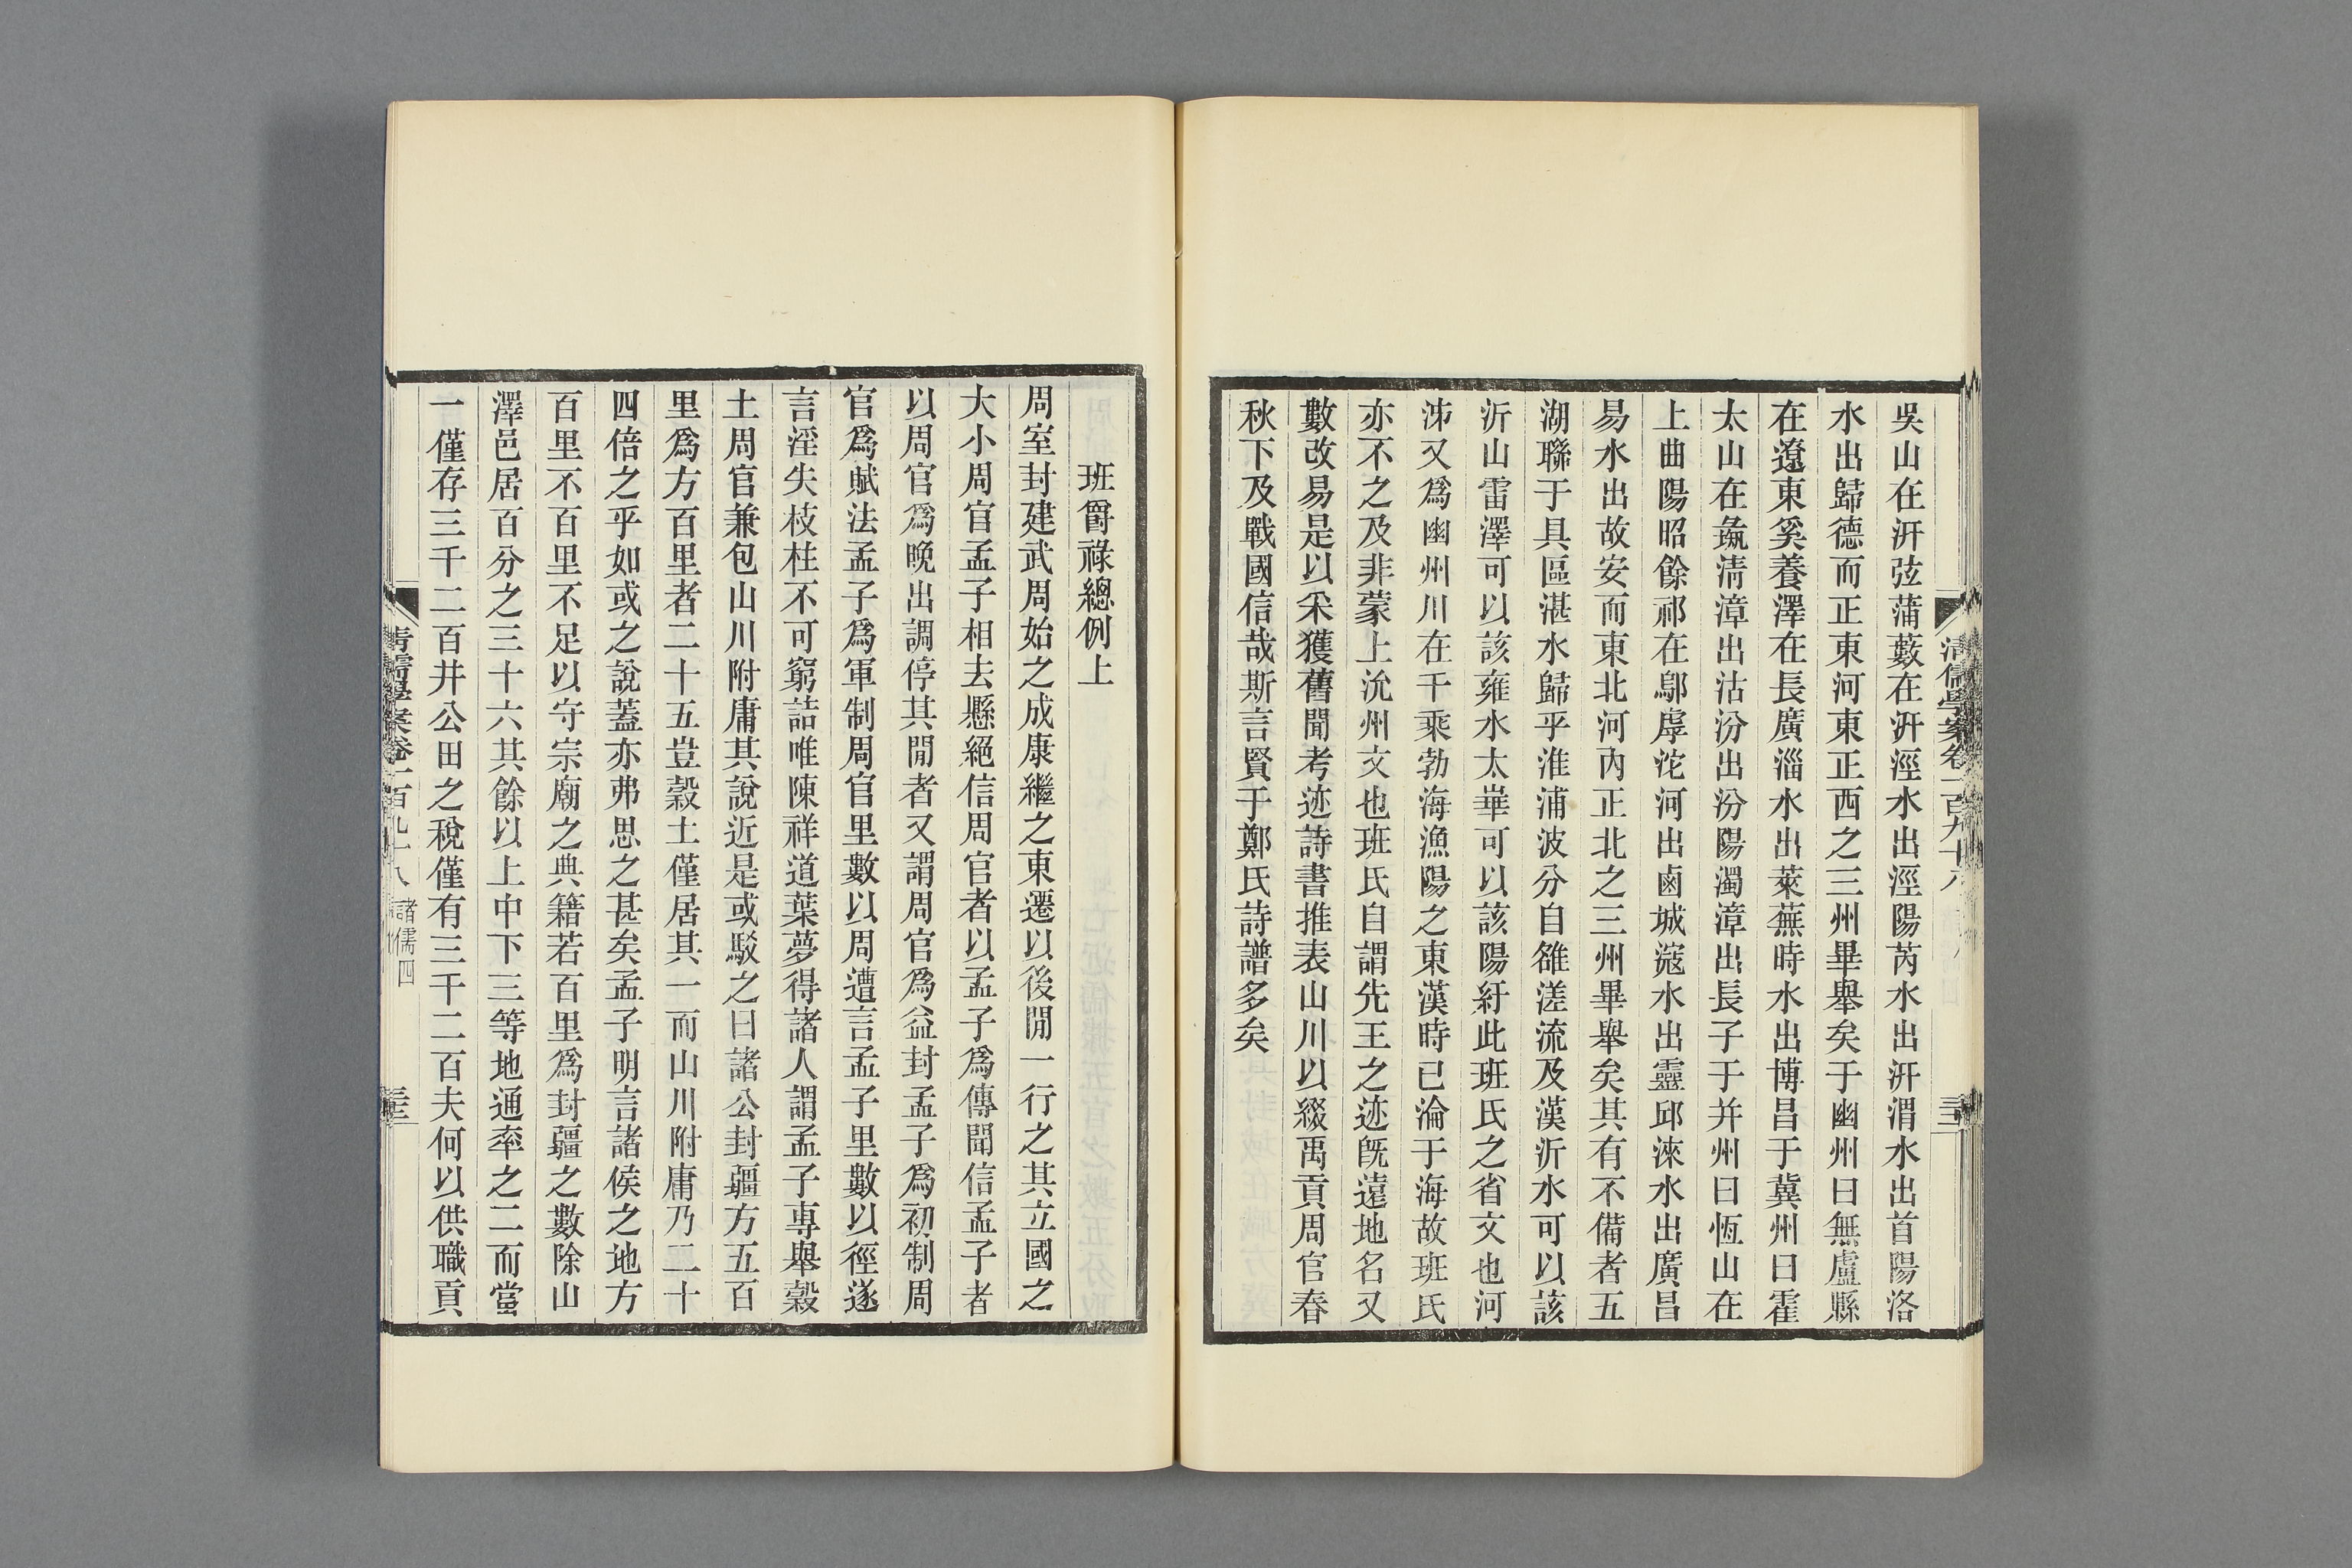 吳山在汧弦蒲藪在汧涇水出涇陽芮水出汧渭水出首陽洛
水出歸德而正東河東正西之三州畢舉矣于幽州曰無慮縣
在遼東奚養澤在長廣淄水出萊蕪時水出博昌于冀州曰霍
太山在彘清漳出沽汾出汾陽濁漳出長子于并州曰恆山在
上曲陽昭餘祁在鄔虖沱河出鹵城滱水出靈邱淶水出廣昌
易水出故安而東北河內正北之三州畢舉矣其有不備者五
湖聯于具區湛水歸乎淮浦波分自雒溠流及漢沂水可以該
沂山雷澤可以該雍水太崋可以該陽紆此班氏之省文也河
泲又爲幽州川在千乘勃海漁陽之東漢時已淪于海故班氏
亦不之及非蒙上沇州文也班氏自謂先王之迹旣遠地名又
數改易是以采獲舊聞考迹詩書推表山川以綴禹貢周官春
秋下及戰國信哉斯言賢于鄭氏詩譜多矣
清儒學案卷一百九十八
班爵祿總例上
周室封建武周始之成康繼之東遷以後閒一行之其立國之
大小周官孟子相去懸絕信周官者以孟子爲傳聞信孟子者
以周官爲晚出調停其閒者又謂周官爲益封孟子爲初制周
官爲賦法孟子爲軍制周官里數以周遭言孟子里數以徑遂
言淫失枝柱不可窮詰唯陳祥道葉夢得諸人謂孟子專舉穀
土周官兼包山川附庸其說近是或駁之曰諸公封疆方五百
里爲方百里者二十五豈穀土僅居其一而山川附庸乃二十
四倍之乎如或之說蓋亦弗思之甚矣孟子明言諸侯之地方
百里不百里不足以守宗廟之典籍若百里爲封疆之數除山
澤邑居百分之三十六其餘以上中下三等地通率之二而當
一僅存三千二百井公田之稅僅有三千二百夫何以供職貢
清儒學案卷一百九十八 諸儒四